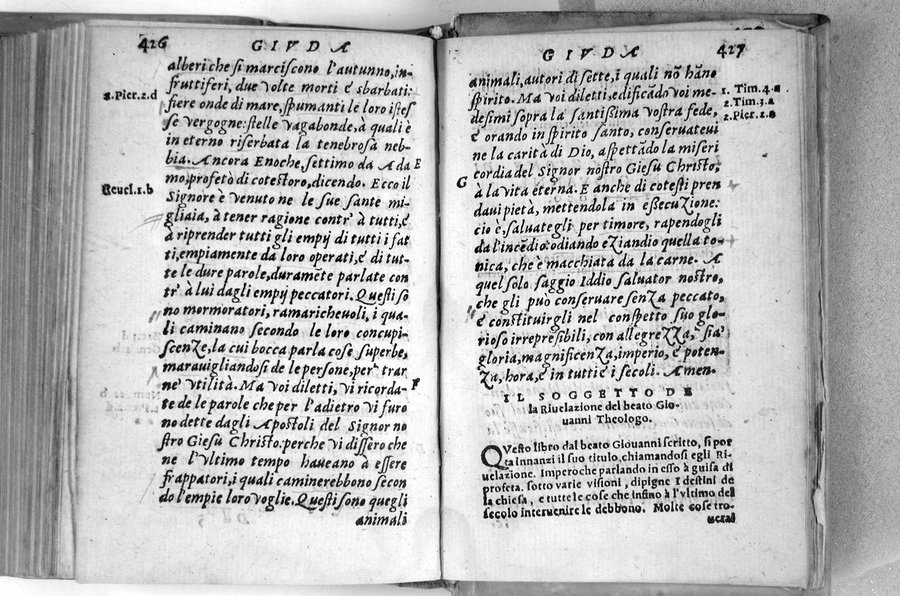 426
GIVDA
alberi che si marciscono l'autunno, in-
fruttiferi, due volte morti é sbarbati:
2. Pier. 2. d
fiere onde di mare, spumanti le loro istes
se vergogne: stelle vagabonde, à quali è
in eterno riserbata la tenebrosa neb-
bia. Ancora Enoche, settimo da Ada
E
mo, profetò di cotestoro, dicendo. Ecco il
Reuel. 1. b
Signore è venuto ne le sue sante mi-
gliaia, à tener ragione contr' à tutti, é
à riprender tutti gli empij di tutti i fat
ti, empiamente da loro operati, é di tut-
te le dure parole, duramẽte parlate con
tr' à lui dagli empij peccatori. Questi so
no mormoratori, ramaricheuoli, i qua-
li caminano secondo le loro concupi-
scenze, la cui bocca parla cose superbe,
marauigliandosi de le persone, per trar
ne vtilità. Ma voi diletti, vi ricorda-
F
te de le parole che per l'adietro vi furo
no dette dagli Apostoli del Signor no
stro Giesù Christo: perche vi dissero che
ne l'vltimo tempo haueano à essere
frappatori, i quali caminerebbono secon
do l'empie loro voglie. Questi sono quegli
animali
GIVDA
427
animali, autori di sette, i quali nõ hãno
spirito. Ma voi diletti, edificãdo voi me-
1. Tim. 4. a
desimi sopra la santissima vostra fede,
2. Tim. 3. a
é orando in spirito santo, conseruateui
2. Pier. 2. a
ne la carità di Dio, aspettãdo la miseri
cordia del Signor nostro Giesù Christo,
G
à la vita eterna. E anche di cotesti pren
daui pietà, mettendola in essecuzione:
cio è, saluategli per timore, rapendogli
da l'incẽdio: odiando eziandio quella to-
nica, che è macchiata da la carne. A
quel solo saggio Iddio saluator nostro,
che gli può conseruare senza peccato,
é constituirgli nel conspetto suo glo-
rioso irrepresibili, con allegrezza, sia
gloria, magnificenza, imperio, é poten-
za, hora, é in tutti é i secoli. Amen.
IL SOGGETTO DE
la Riuelazione del beato Gio-
uanni Theologo.
QVesto libro dal beato Giouanni scritto, si por
ta innanzi il suo titulo, chiamandosi egli Ri-
uelazione. Impero che parlando in esso à guisa di
profeta, sotto varie visioni, dipigne i destini de
la chiesa, e tutte le cose che insino à l'vltimo del
secolo interuenire le debbono. Molte cose tro-
uerai